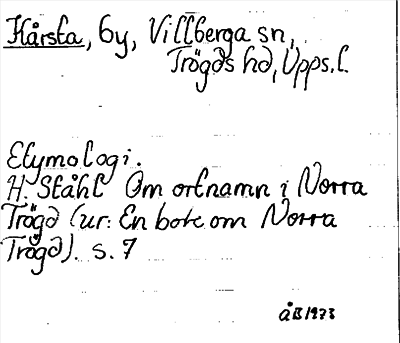 Hårsta, by, Villberga sn,
Trögds hd, Upps. l.
Etymologi.
H. Ståhl Om ortnamn i Norra
Trögd (ur: En bok om Norra
Trögd). s. 7
ÅB 1973